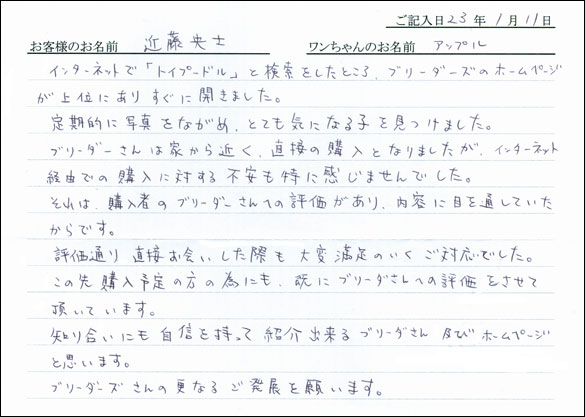 ご記入日 23 年 1 月 11 日
お客様のお名前 近藤央士 ワンちゃんのお名前 アップル
インターネットで「トイプードル」と検索をしたところ、ブリーダーズのホームページ
が上位にありすぐに開きました。
定期的に写真をながめ、とても気になる子を見つけました。
ブリーダーさんは家から近く、直接の購入となりましたが、インターネット
経由での購入に対する不安も特に感じませんでした。
それは、購入者のブリーダーさんへの評価があり、内容に目を通していた
からです。
評価通り直接お会いした際も大変満足のいくご対応でした。
この先購入予定の方の為にも、既にブリーダさんへの評価をさせて
頂いています。
知り合いにも自信を持って紹介出来るブリーダさん及びホームページ
と思います。
ブリーダーズさんの更なるご発展を願います。